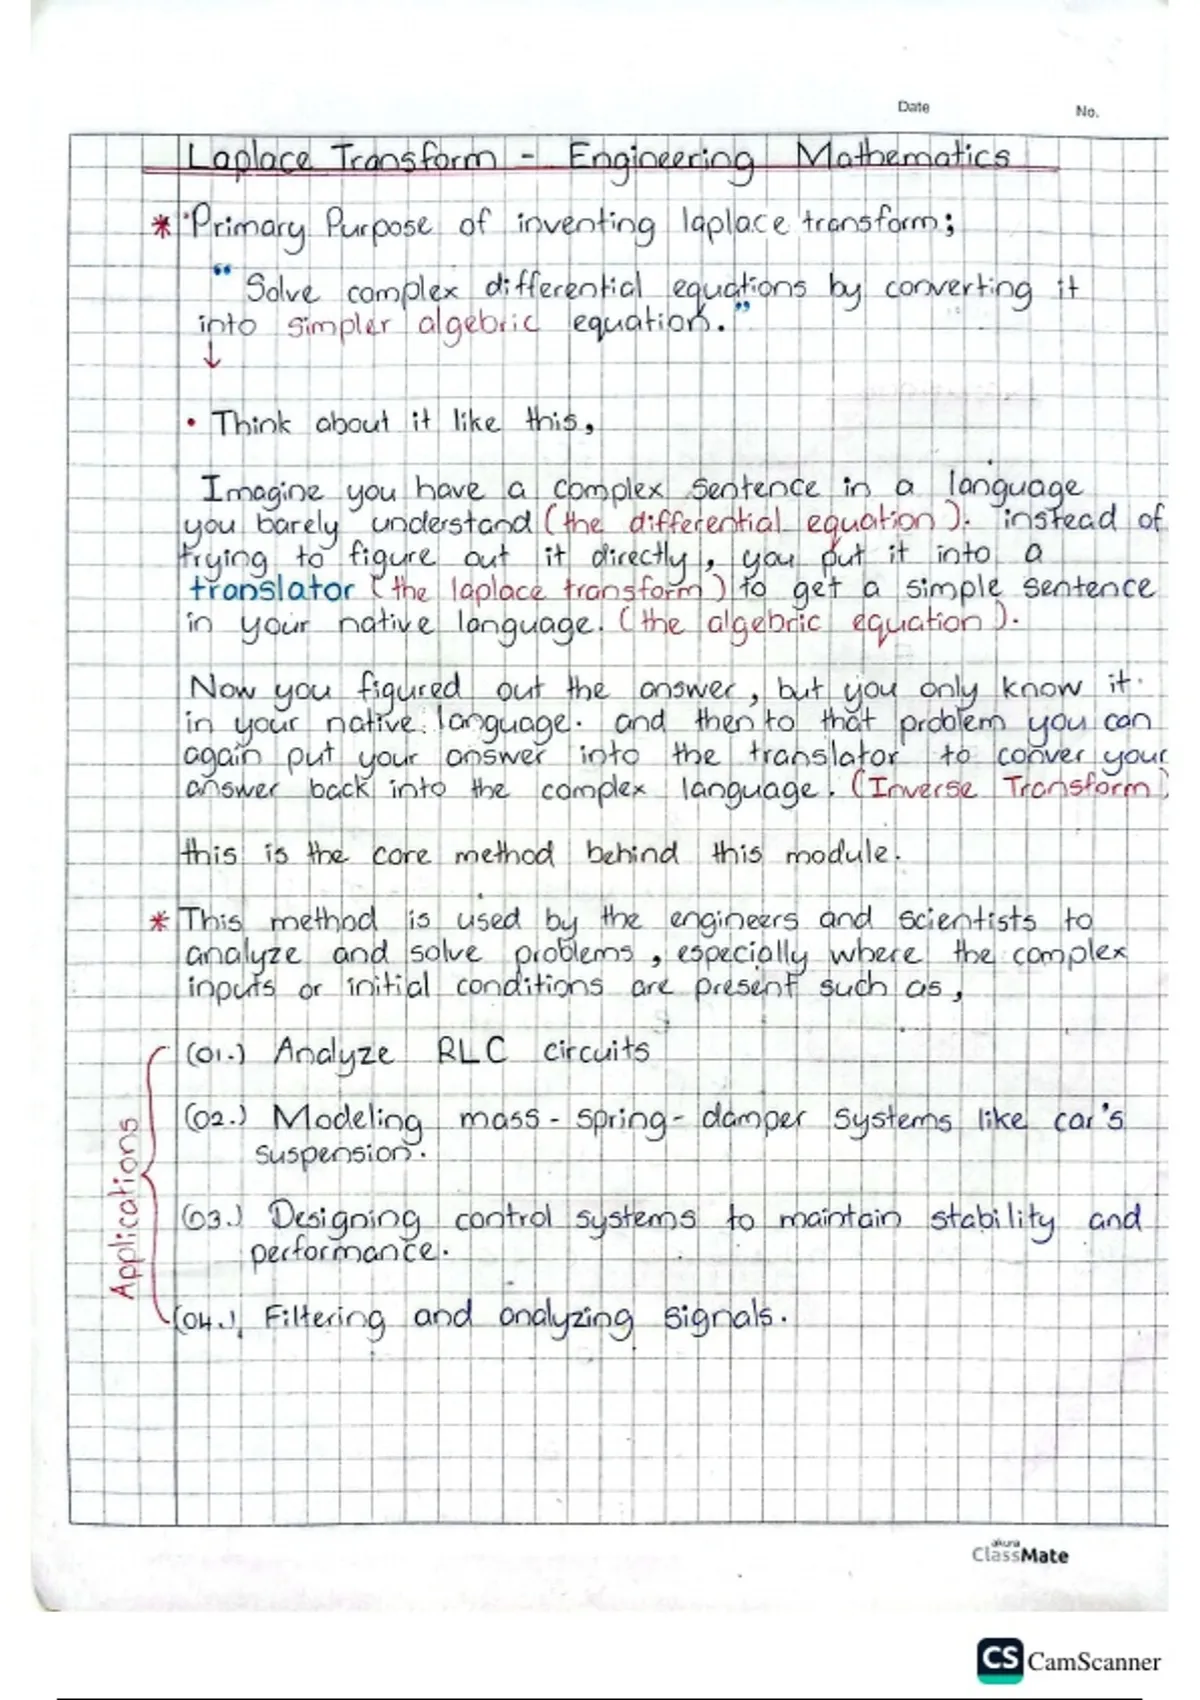 Date
No.
Laplace Transform - Engineering Mathematics
* Primary Purpose of inventing laplace transform;
“ Solve complex differential equations by converting it
into simpler algebric equation.”
↓
• Think about it like this,
Imagine you have a complex sentence in a language
you barely understand (the differential equation). instead of
trying to figure out it directly, you put it into a
translator (the laplace transform) to get a simple sentence
in your native language. (the algebric equation).
Now you figured out the answer, but you only know it
in your native language. and then to that problem you can
again put your answer into the translator to conver your
answer back into the complex language. (Inverse Transform)
this is the core method behind this module.
* This method is used by the engineers and scientists to
analyze and solve problems, especially where the complex
inputs or initial conditions are present such as,
Applications
(01.) Analyze RLC circuits
(02.) Modeling mass-spring-damper systems like car's
suspension.
(03.) Designing control systems to maintain stability and
performance.
(04.) Filtering and analyzing signals.
akura
ClassMate
CS CamScanner